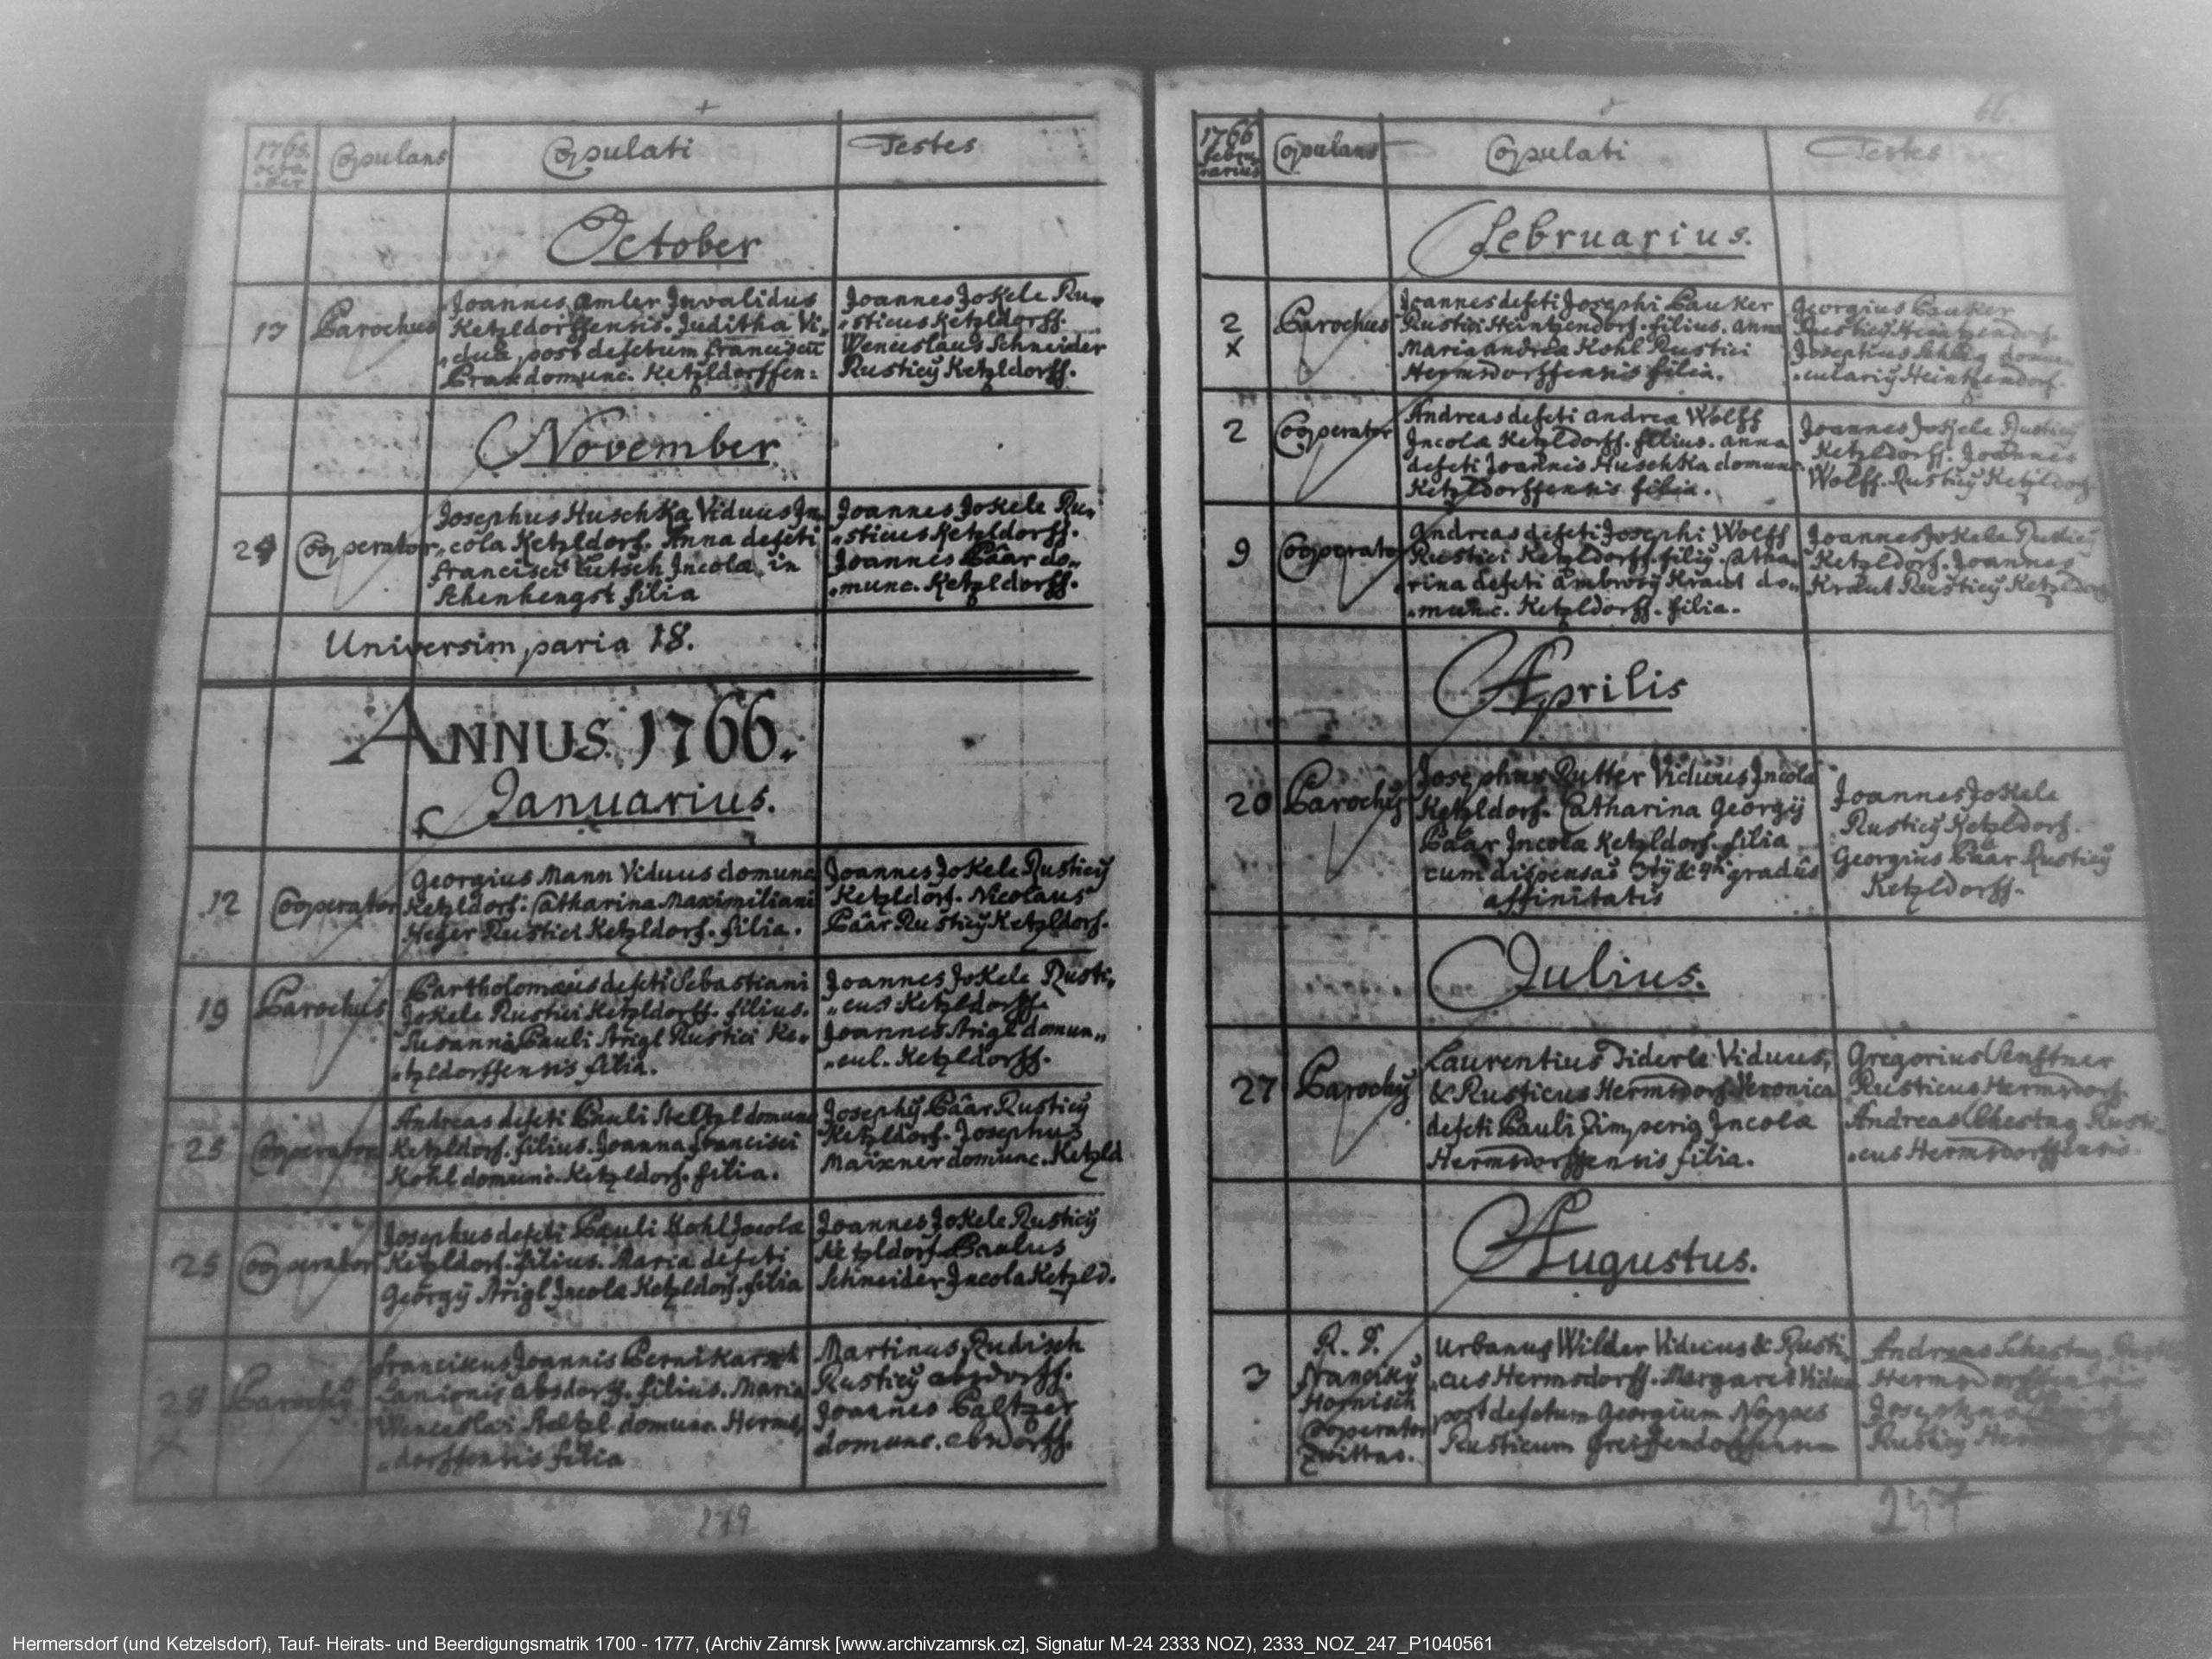 1765. octo-
-ber
Copulans
Copulati
Testes
October
13
Parochus
Joannes Amler Invalidus
Ketzldorffensis. Juditha Vi„
„dua post defctum franciscū
domunc. Ketzldorffen:
Joannes Jokele Ru„
„sticus Ketzldorff.
Wenceslaus Schneider
Rusticÿ Ketzldorff.
November
Cooperator
Josephus Huschka Viduus In„
„cola Ketzldorf. Anna defcti
francisci Lutsch Incolæ in
Schenhengst filia
Joannes Jokele Ru„
„sticus Ketzldorff.
Joannes Päar do„
„munc. Ketzldorff.
Universim paria 18.
ANNUS 1766.
Januarius.
12
Cooperator
Georgius Mann Viduus domunc
Ketzldorf: Catharina Maximiliani
Heger Rustici Ketzldorf. filia.
Joannes Jokele Rusticÿ
Ketzldorf. Nicolaus
Päar Rusticÿ Ketzldorf.
19
Parochus
Bartholomæus defcti Sebastiani
Jokele Rustici Ketzldorff. filius.
Susanna Pauli Arigl Rustici Ke„
„tzldorffensis filia.
Joannes Jokele Rusti„
„cus Ketzldorff.
Joannes Arigl domun„
„cul. Ketzldorff.
25
Cooperator
Andreas defcti Pauli Steltzl domunc
Ketzldorf. filius. Joanna francisci
Kohl domunc. Ketzldorf. filia.
Josephÿ Päar Rusticÿ
Ketzldorf. Josephus
Maixner domunc. Ketzld
25
Cooperator
Josephus defcti Pauli Kohl Incolæ
Ketzldorf. filius. Maria defcti
Georgÿ Arigl Incolæ Ketzldorf. filia
Joannes Jokele Rusticÿ
Ketzldorf Paulus
Schneider Incola Ketzld.
28
X
Parochÿ
franciscus Joannis Pernikarsch
Lanionis absdorff. filius. Maria
Wenceslai Steltzl domunc. Herms„
„dorffensis filia
Martinus Rudisch
Rusticÿ absdorff.
Joannes Paltzer
domunc. absdorff.
279
66.
1766
febru
rarius
Copulans
Copulati
Testes
Februarius.
2
X
Parochus
Joannes defcti Josephi Pauker
Rustici Heintzendorf. filius. Anna
Maria Andreæ Kohl Rustici
Hermsdorffensis filia.
Georgius Pauker
Rusticÿ Heintzendorf.
Josephus Schleg domun„
„culariÿ Heintzendorf.
2
Cooperator
Andreas defcti Andreæ Wolff
Incolæ Ketzldorff. filius. Anna
defcti Joannis Huschka domunc.
Ketzldorffensis filia.
Joannes Jokele Rusticÿ
Ketzldorff. Joannes
Wolff. Rusticÿ Ketzldorf
9
Cooperator
Andreas defcti Josephi Wolff
Rustici Ketzldorff. filiÿ. Catha„
„rina defcti Ambrosÿ Kraut do„
„munc. Ketzldorff. filia.
Joannes Jokele Rusticÿ
Ketzldorf. Joannes
Kraut Rusticÿ Ketzldorf
Aprilis
20
Parochÿ
Josephus Rutter Viduus Incola
Ketzldorf. Catharina Georgÿ
Päar Incolæ Ketzldorf. filia
cum dispensaõ 3tÿ & 4ti gradûs
affinitatis
Joannes Jokele
Rusticÿ Ketzldorf.
Georgius Päar Rusticÿ
Ketzldorff.
Julius.
27
Parochÿ
Laurentius Tiderle Viduus,
& Rusticus Hermsdorf. Veronica
defcti Pauli Pimperig Incolæ
Hermsdorffensis filia.
Gregorius Senftner
Rusticus Hermsdorf.
Andreas Schestag Rusti„
„cus Hermsdorffensis.
Augustus.
3
R. D.
Franciskÿ
Hornisch
Cooperator
Zwittav.
Urbanus Wilder Viduus & Rusti„
„cus Hermsdorff. Margaret Vidua
post defctum Georgium Noppes
Rusticum Greiffendorffensem
Andreas Schestag
Hermsdorffensis
Rusticÿ
247
Hermersdorf (und Ketzelsdorf), Tauf- Heirats- und Beerdigungsmatrik 1700 - 1777, (Archiv Zámrsk [www.archivzamrsk.cz], Signatur M-24 2333 NOZ), 2333_NOZ_247_P1040561